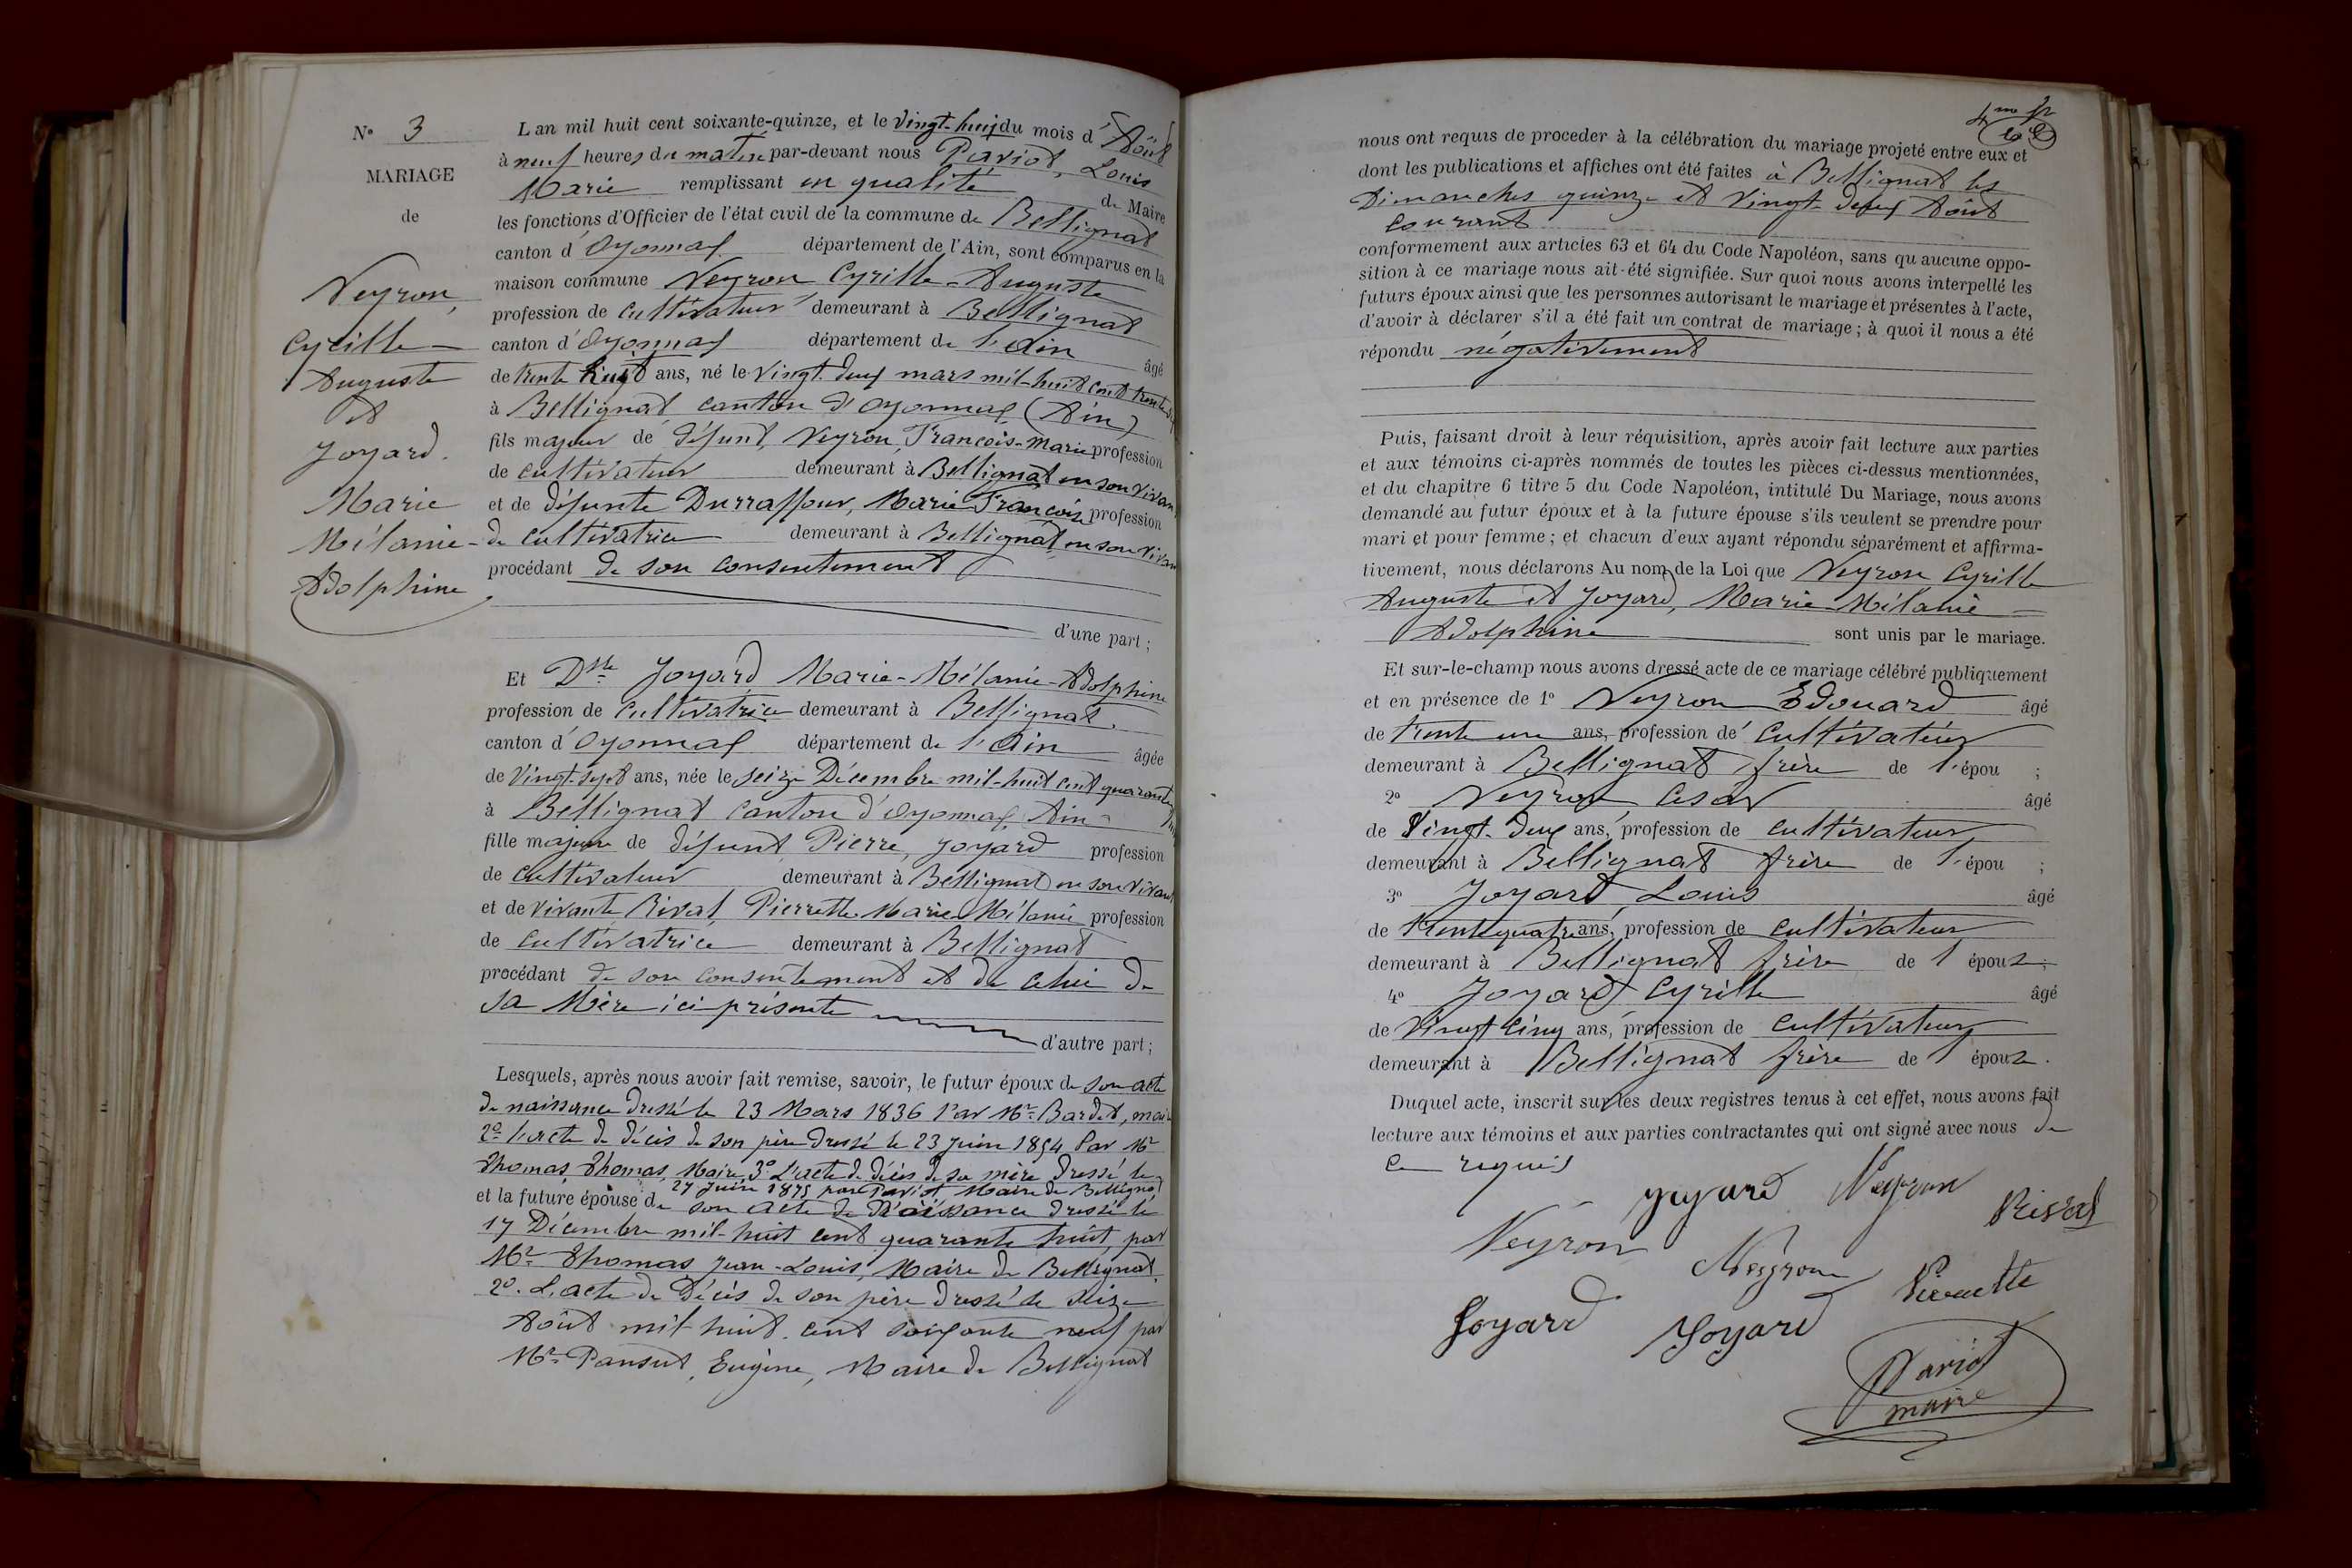 N° 3
MARIAGE
de
Veyron,
Cyrille
Auguste
et
Joyard.
Marie
Mélanie
Adolphine
L'an mil huit cent soixante-quinze, et le Vingt-huit du mois d'Août
à neuf heures du matin par-devant nous Pariot, Louis
Marie remplissant en qualité de Maire
les fonctions d'Officier de l'état civil de la commune de Bellignat
canton d'Oyonnax département de l'Ain, sont comparus en la
maison commune Veyron Cyrille-Auguste
profession de Cultivateur demeurant à Bellignat
canton d'Oyonnax département de l'Ain âgé
de trente huit ans, né le Vingt-deux mars mil-huit cent trente
à Bellignat canton d'Oyonnax (Ain)
fils majeur de défunt, Veyron, François-Marie profession
de cultivateur demeurant à Bellignat en son vivant
et de défunte Durraffour, Marie Françoise profession
de cultivatrice demeurant à Bellignat en son vivant
procédant de son consentement
d'une part ;
Et Dlle Joyard Marie-Mélanie-Adolphine
profession de Cultivatrice demeurant à Bellignat.
canton d'Oyonnax département de l'Ain âgée
de Vingt-sept ans, née le seize Décembre mil-huit cent quarante
à Bellignat Canton d'Oyonnax, Ain
fille majeure de défunt, Pierre, Joyard profession
de Cultivateur demeurant à Bellignat en son vivant
et de vivante Rival, Pierrette Marie Mélanie profession
de cultivatrice demeurant à Bellignat
procédant de son consentement et de celui de
sa Mère ici présente
d'autre part ;
Lesquels, après nous avoir fait remise, savoir, le futur époux de son acte
de naissance dressé le 23 Mars 1836 Par Mr Bardet, maire
2° l'acte de décès de son père dressé le 23 juin 1854 Par Mr
Thomas, Thomas, Maire, 3° L'acte de décès de sa mère dressé le
27 juin 1875 par Pariot Maire de Bellignat
et la future épouse de son acte de naissance dressé le
17 Décembre mil-huit cent quarante huit, par
Mr Thomas Jean-Louis, Maire de Bellignat.
2°. L'acte de Décès de son père dressé le seize
Août mil-huit cent soixante neuf par
Mr Pansut, Eugène, Maire de Bellignat
4me
nous ont requis de procéder à la célébration du mariage projeté entre eux et
dont les publications et affiches ont été faites à Bellignat les
Dimanches quinze et Vingt-deux Août
courant
conformément aux articles 63 et 64 du Code Napoléon, sans qu'aucune oppo-
sition à ce mariage nous ait été signifiée. Sur quoi nous avons interpellé les
futurs époux ainsi que les personnes autorisant le mariage et présentes à l'acte,
d'avoir à déclarer s'il a été fait un contrat de mariage ; à quoi il nous a été
répondu négativement
Puis, faisant droit à leur réquisition, après avoir fait lecture aux parties
et aux témoins ci-après nommés de toutes les pièces ci-dessus mentionnées,
et du chapitre 6 titre 5 du Code Napoléon, intitulé Du Mariage, nous avons
demandé au futur époux et à la future épouse s'ils veulent se prendre pour
mari et pour femme ; et chacun d'eux ayant répondu séparément et affirma-
tivement, nous déclarons Au nom de la Loi que Veyron Cyrille
Auguste et Joyard, Marie-Mélanie
Adolphine sont unis par le mariage.
Et sur-le-champ nous avons dressé acte de ce mariage célébré publiquement
et en présence de 1° Veyron Edouard âgé
de trente un ans, profession de Cultivateur
demeurant à Bellignat frère de l'épou ;
2° Veyron Cesar âgé
de Vingt-deux ans, profession de cultivateur
demeurant à Bellignat frère de l'épou ;
3° Joyard Louis âgé
de trente quatre ans, profession de cultivateur
demeurant à Bellignat frère de l'épouse ;
4° Joyard Cyrille âgé
de Vingt cinq ans, profession de cultivateur
demeurant à Bellignat frère de l'épouse.
Duquel acte, inscrit sur les deux registres tenus à cet effet, nous avons fait
lecture aux témoins et aux parties contractantes qui ont signé avec nous de
ce requis
Joyard Veyron
Veyron Veyron Rival
Pierrette
Joyard Joyard
Pariot
maire